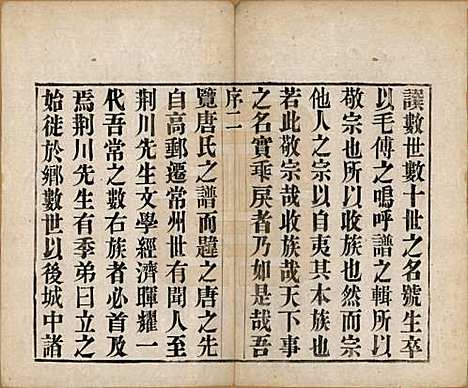 謨數世數十世之名號生卒
以毛傅之嗚呼譜之輯所以
敬宗也所以收族也然而宗
他人之宗以自夷其本族也
若此敬宗哉收族哉天下事
之名實乖戾者乃如是哉吾
序二
覽唐氏之譜而韙之唐之先
自高郵遷常州世有聞人至
荆川先生文學經濟暉耀一
代吾常之數右族者必首及
焉荆川先生有季弟曰立之
始徙於鄉數世以後城中諸